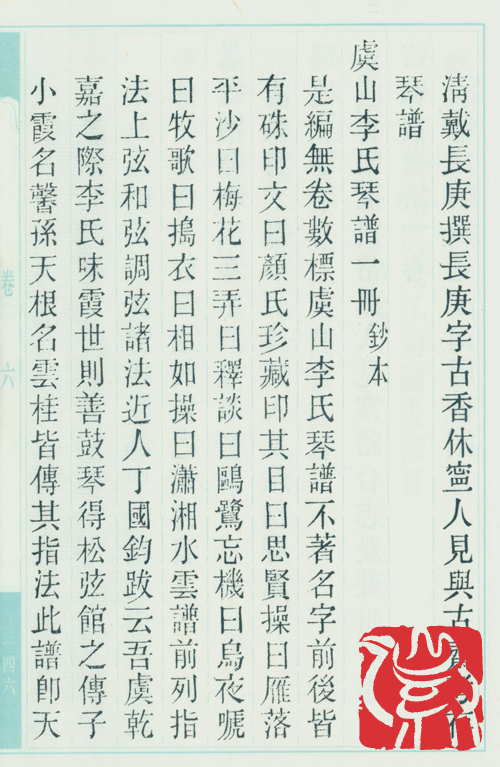 清戴長庚撰長庚字古香休寧人見與古齋琴
琴譜
虞山李氏琴譜一冊 鈔本
是編無卷數標虞山李氏琴譜不著名字前後皆
有硃印文曰顏氏珍藏印其目曰思賢操曰雁落
平沙曰梅花三弄曰釋談曰鷗鷺忘機曰烏夜嗁
曰牧歌曰搗衣曰相如操曰瀟湘水雲譜前列指
法上弦和弦調弦諸法近人丁國鈞跋云吾虞乾
嘉之際李氏味霞世則善鼓琴得松弦館之傳子
小霞名馨孫天根名雲桂皆傳其指法此譜卽天
卷六
一四六